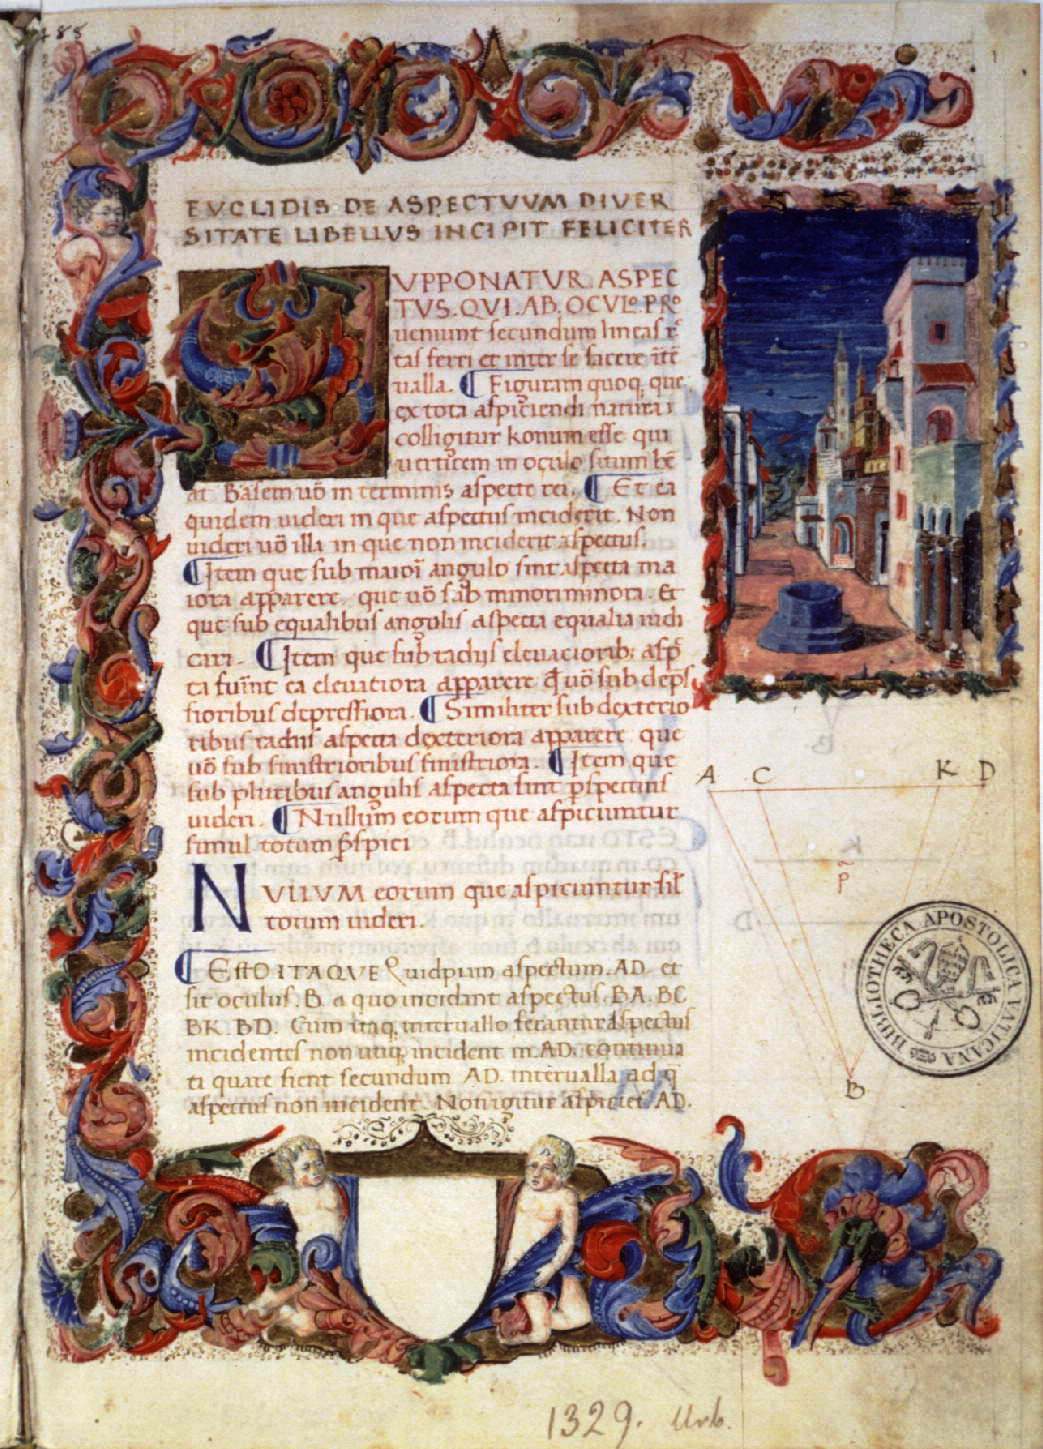 485
EVCLIDIS DE ASPECTVVM DIVER
SITATE LIBELLVS INCIPIT FELICITER
SVPPONATVR ASPEC
TVS. QVI. AB. OCVLo. PRo
ueniunt secundum lineas rc̄
tas ferri et inter se facere īte
ualla. Figuram quoq, que
ex tota aspiciendi natura
colligitur konum esse qui
uerticem in oculo situm
at. Basem uō in terminis aspecte rei. Et ea
quidem uideri in que aspectus inciderit. Non
uideri uō illa in que non inciderit aspectus.
Item que sub maiori angulo sint aspecta ma
iora apparere. que uō sub minori minora. Et
que sub equalibus angulis aspecta equalia iudi
cari. Item que sub radijs eleuatiorib;
ta fuīnt ea eleuatiora apparere. q̄ uō sub dep̄s
sioribus depressiora. Similiter sub dexterio
ribus radijs aspecta dexteriora apparere que
uō sub sinistrioribus sinistriora. Item que
sub pluribus angulis aspecta sint p̄spectius
uideri. Nullum eorum que aspiciuntur
simul totum p̄spici
NVLLVM eorum que aspiciuntur sil̄
totum uideri.
ESTO ITAQVE Quidpiam aspectum. AD. et
sit oculus. B. a quo incidant aspectus. BA. BC.
BK. BD. Cum itaq, interuallo ferantur aspectus
incidentes non utiq, incident in. AD. continua
ti quare fient secundum AD. interualla ad q̄
aspectus non incident. Non igitur aspiciet. AD.
A C K D
p̄
B
BIBLIOTHECA APOSTOLICA VATICANA
1329. Urb.